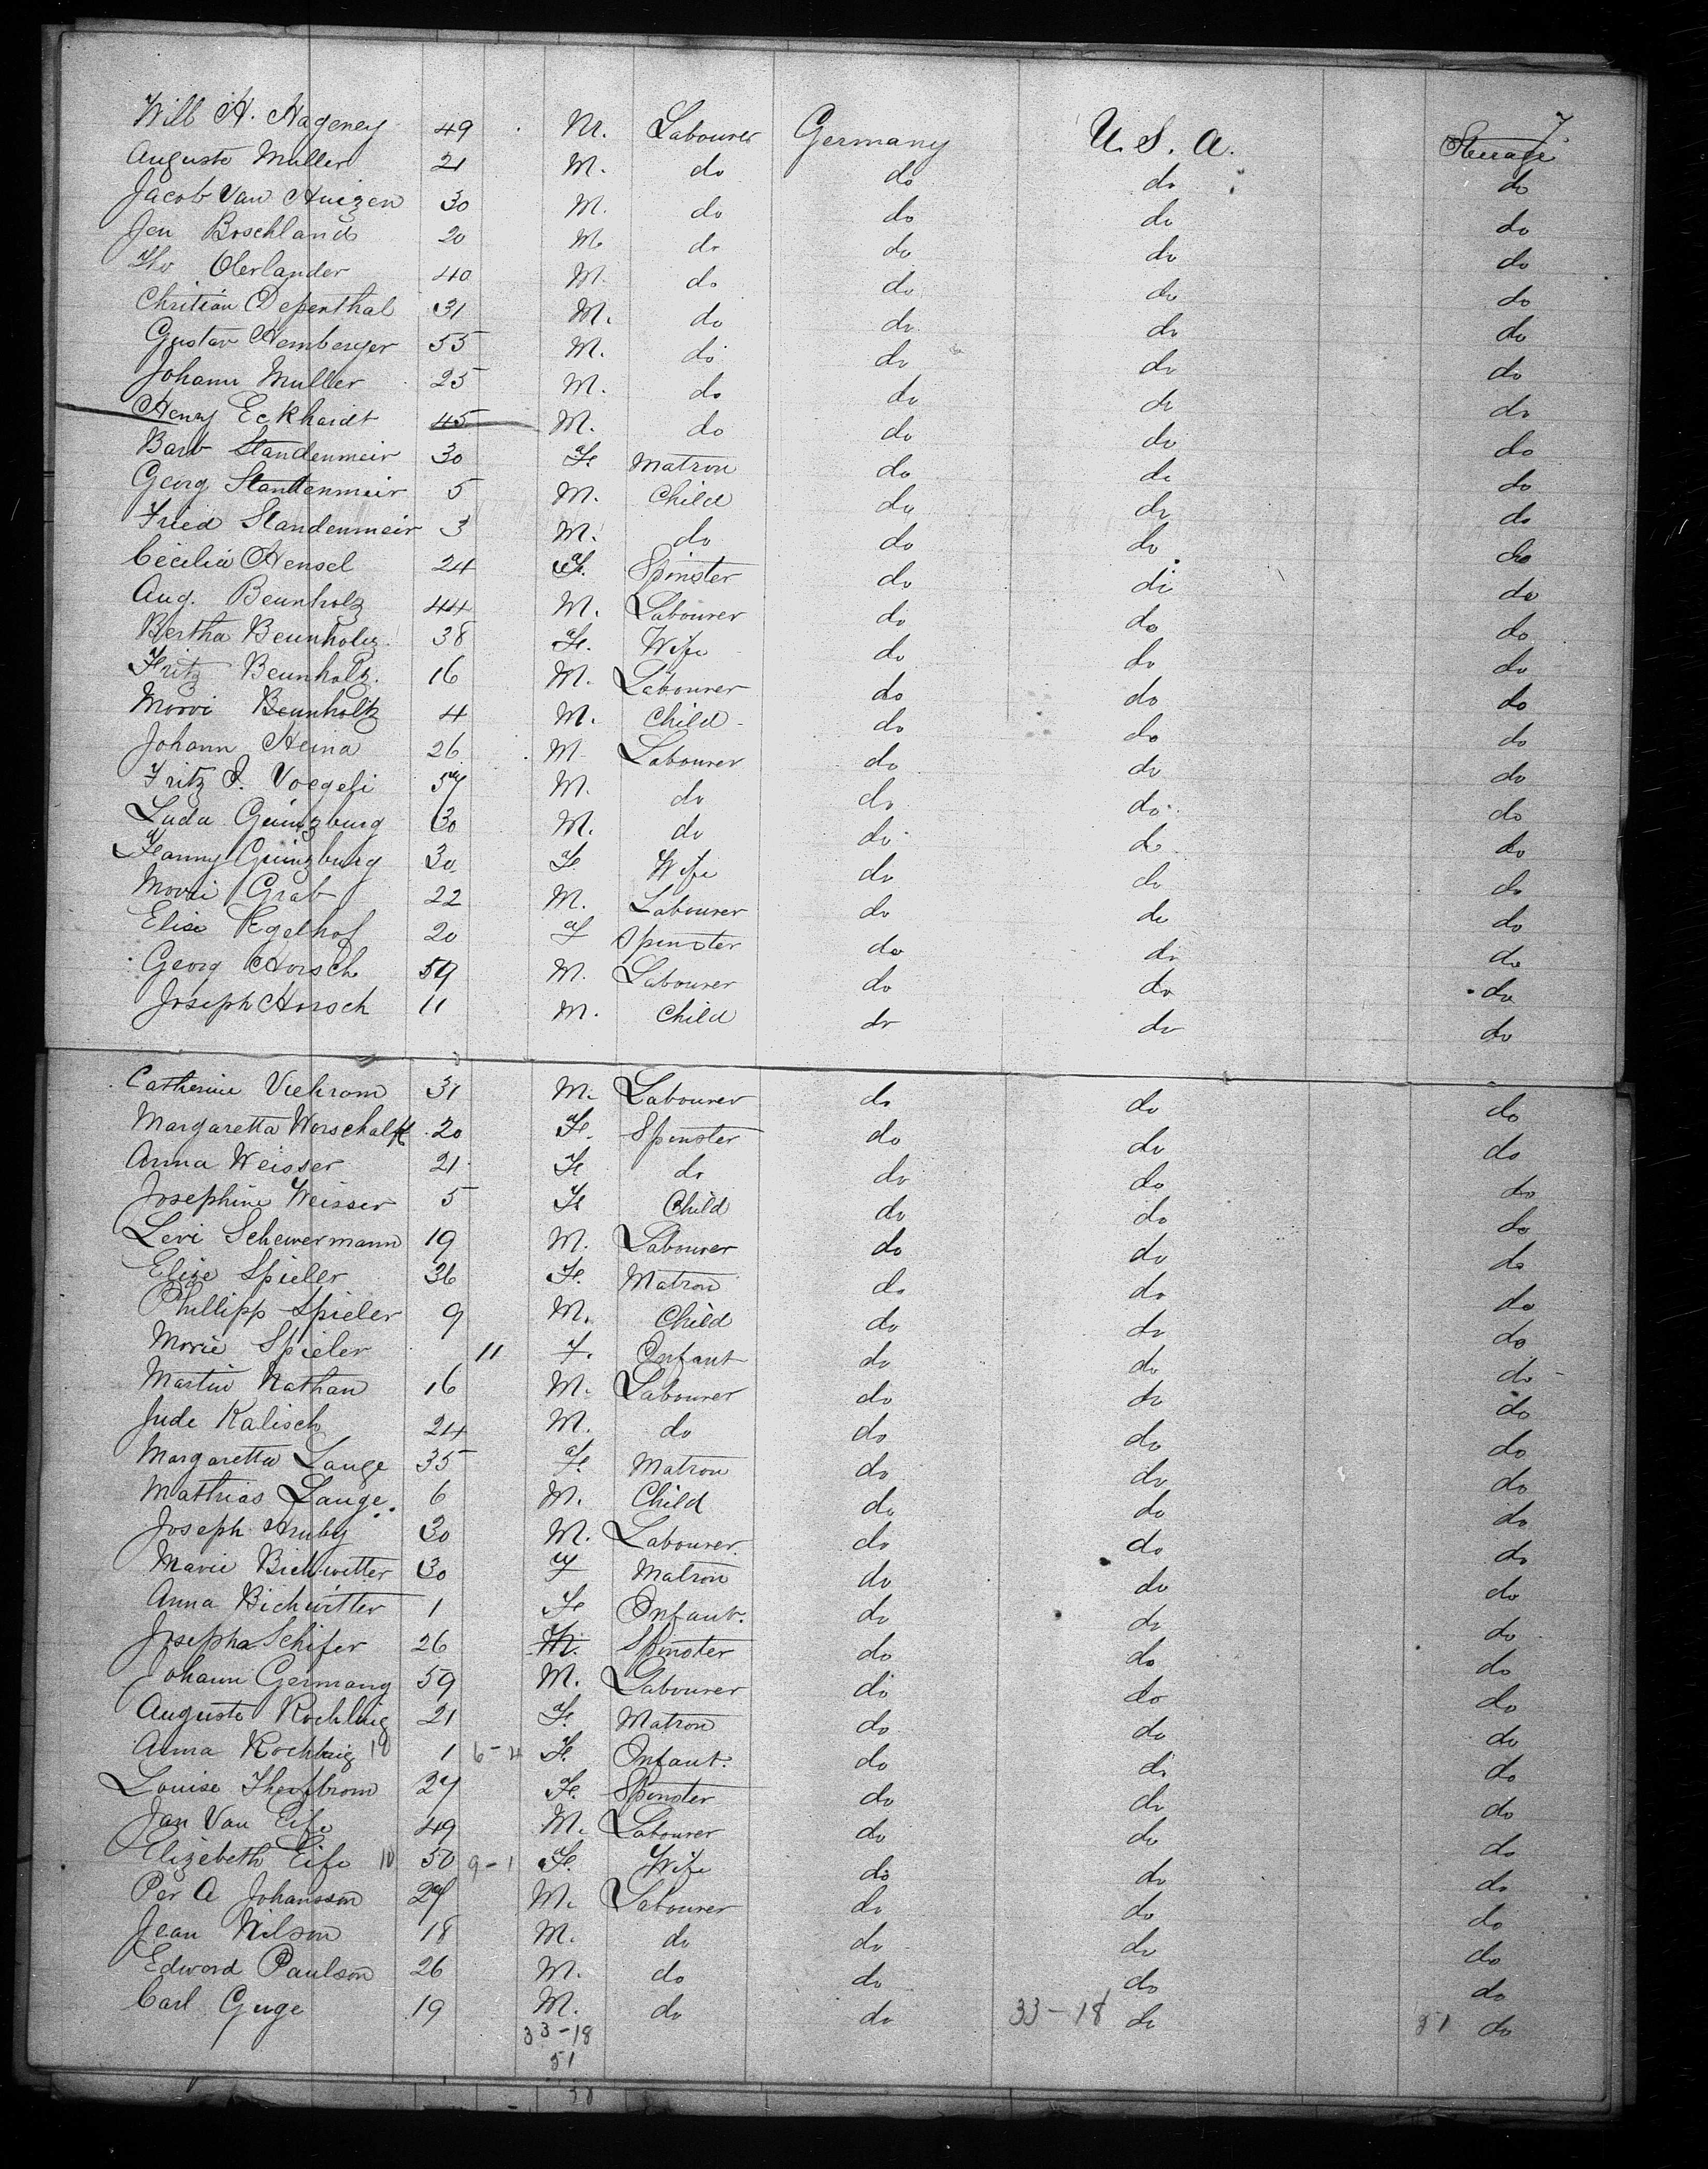 7
Will H. Hageney 49 M. Labourer Germany U. S. A. Steerage
Auguste Muller 21 M. do do do do
Jacob Van Huizen 30 M. do do do do
Jen Boschland 20 M. do do do do
Oberlander 40 M. do do do do
Chritian Depenthal 31 M. do do do do
Gustav Hemberger 55 M. do do do do
Johann Muller 25 M. do do do do
Henry Eckhardt 45 M. do do do do
Barb Standenmeir 30 F. Matron do do do
Georg Standenmeir 5 M. Child do do do
Fried Standenmeir 3 M. do do do do
Cecilia Hensel 24 F. Spinster do do do
Aug. Beunholz 44 M. Labourer do do do
Bertha Beunholz 38 F. Wife do do do
Fritz Beunholz. 16 M. Labourer do do do
Morri Beunholtz 4 M. Child do do do
Johann Heina 26 M Labourer do do do
Fritz J. Voegeli M. do do do do
Luda Guinzburg 30 M. do do do do
Fanny Guinzburg 30 F Wife do do do
Morri Grab 22 M. Labourer do do do
Elise Egelhof 20 F Spinster do do do
Georg Horsch 59 M. Labourer do do do
Joseph Horsch 11 M. Child do do do
Catherine Viehrom 31 M. Labourer do do do
Margaretta 20 F. Spinster do do do
Anna Weisser 21 F do do do do
Josephine Weisser 5 F Child do do do
Levi Scheuermann 19 M. Labourer do do do
Elise Spieler 36 F. Matron do do do
Phillipp Spieler 9 M. Child do do do
Morie Spieler 11 F. Infant do do do
Martin Nathan 16 M. Labourer do do do
Jude Kalisch 24 M. do do do do
Margaretta Lange 35 F. Matron do do do
Mathias Lange. 6 M. Child do do do
Joseph Hruby 30 M. Labourer do do do
Marie Bichwitter 30 F Matron do do do
Anna Bichwitter 1 F Infant. do do do
Josepha Schifer 26 M. Spinster do do do
Johann Germany 59 M. Labourer do do do
Auguste Rochling 21 F. Matron do do do
Anna Rochling 10 1 6-4 F. Infant. do do do
Louise 27 F. Spinster do do do
Jan Van Eife 49 M. Labourer do do do
Elizebeth Eife 10 50 9-1 F. Wife do do do
Per A Johansson 27 M. Labourer do do do
Jean Nilson 18 M. do do do do
Edword Paulson 26 M. do do do do
Carl Guge 19 M. do do 33-18 do 51 do
33-18
51